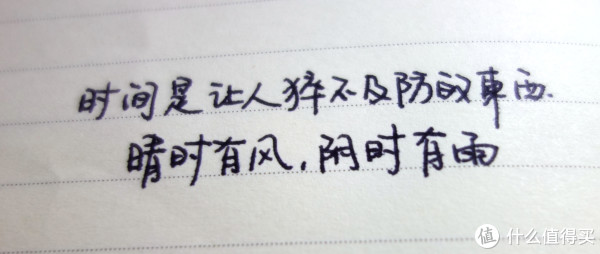 时间是让人猝不及防的東西.
晴时有风,阴时有雨
值 什么值得买